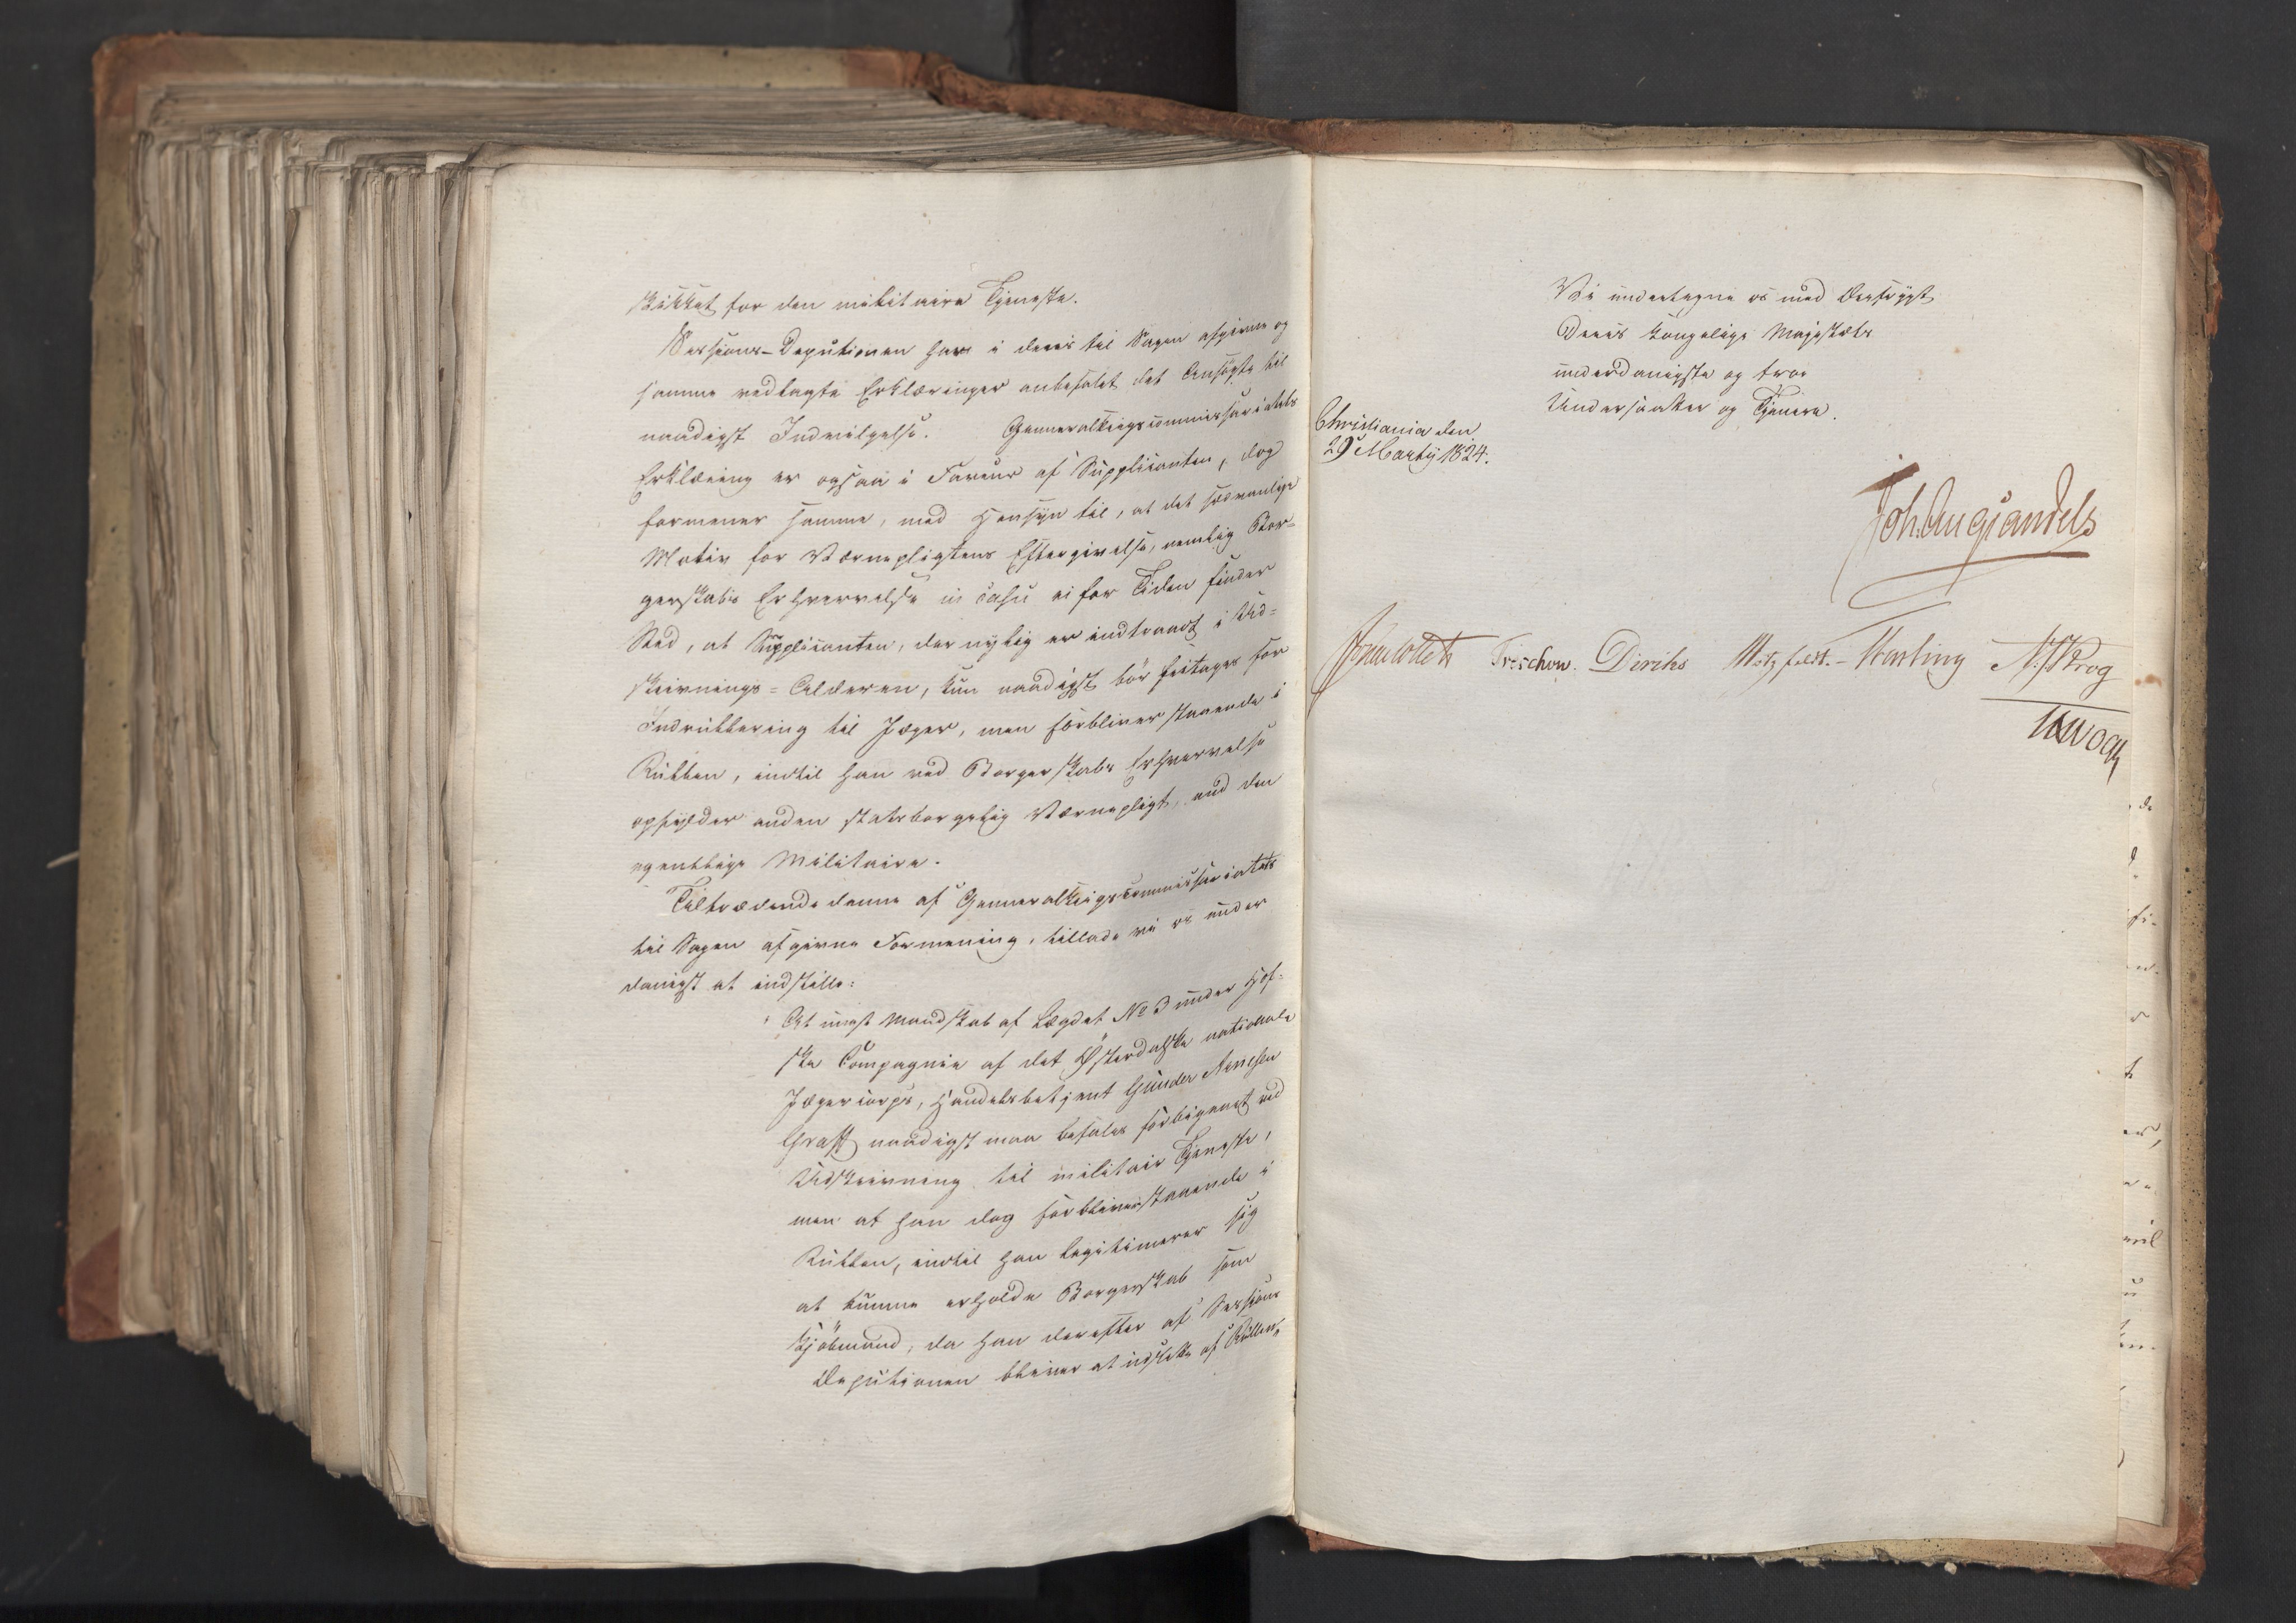 skikket for den militaire Tjeneste.
Sessions-Deputionen har i deres til Sagen afgivne og
samme vedlagte Erklæringer anbefalet det Ansøgte til
naadigst Indvilgelse. Generalkrigscommissariatets
Erklæring er ogsaa i Faveur af Supplicanten, dog
formener samme, med Hensyn til, at det sædvanlige
Motiv for Værnepligtens Eftergivelse, nemlig Bor-
gerskabs Erhvervelse in casu ei for Tiden finder
Sted, at Supplicanten, der nylig er indtraadt i Ud-
skrivnings-Alderen, kun naadigst bör fritages for
Indrullering til Jæger, men forbliver staaende i
Rullen, indtil han ved Borgerskabs Erhvervelse
opfylder anden statsborgerlig Værnepligt, end den
egentlige Militaire.
Tiltrædende denne af Generalkrigscommissariatets
til Sagen afgivne Formening, tillade vi os under
danigst at indstille:
At ungt Mandskab af Lægdet No 3 under Hof-
ske Compagnie af det Østerdalske nationale
Jægercorps, Handelsbetjent Gunder Arnesen
Graff naadigst maa befales forbigaaet ved
Udskrivning til militair Tjeneste,
men at han dog forbliver staaende i
Rullen, indtil han legitimerer sig
at kunne erholde Borgerskab som
Kjöbmand, da han derefter af Sessions
Deputionen bliver at udslette af Rullen.
Vi undertegne os med Dersrygt
Deres Kongelige Majestæts
underdanigste og troe
Undersaatter og Tjenere.
Christiania den
29 Martij 1824.
Joh. Aug. Sandels
Sommerhielm Treschow. Diriks Motzfeldt. Hersleb N. J. Krog